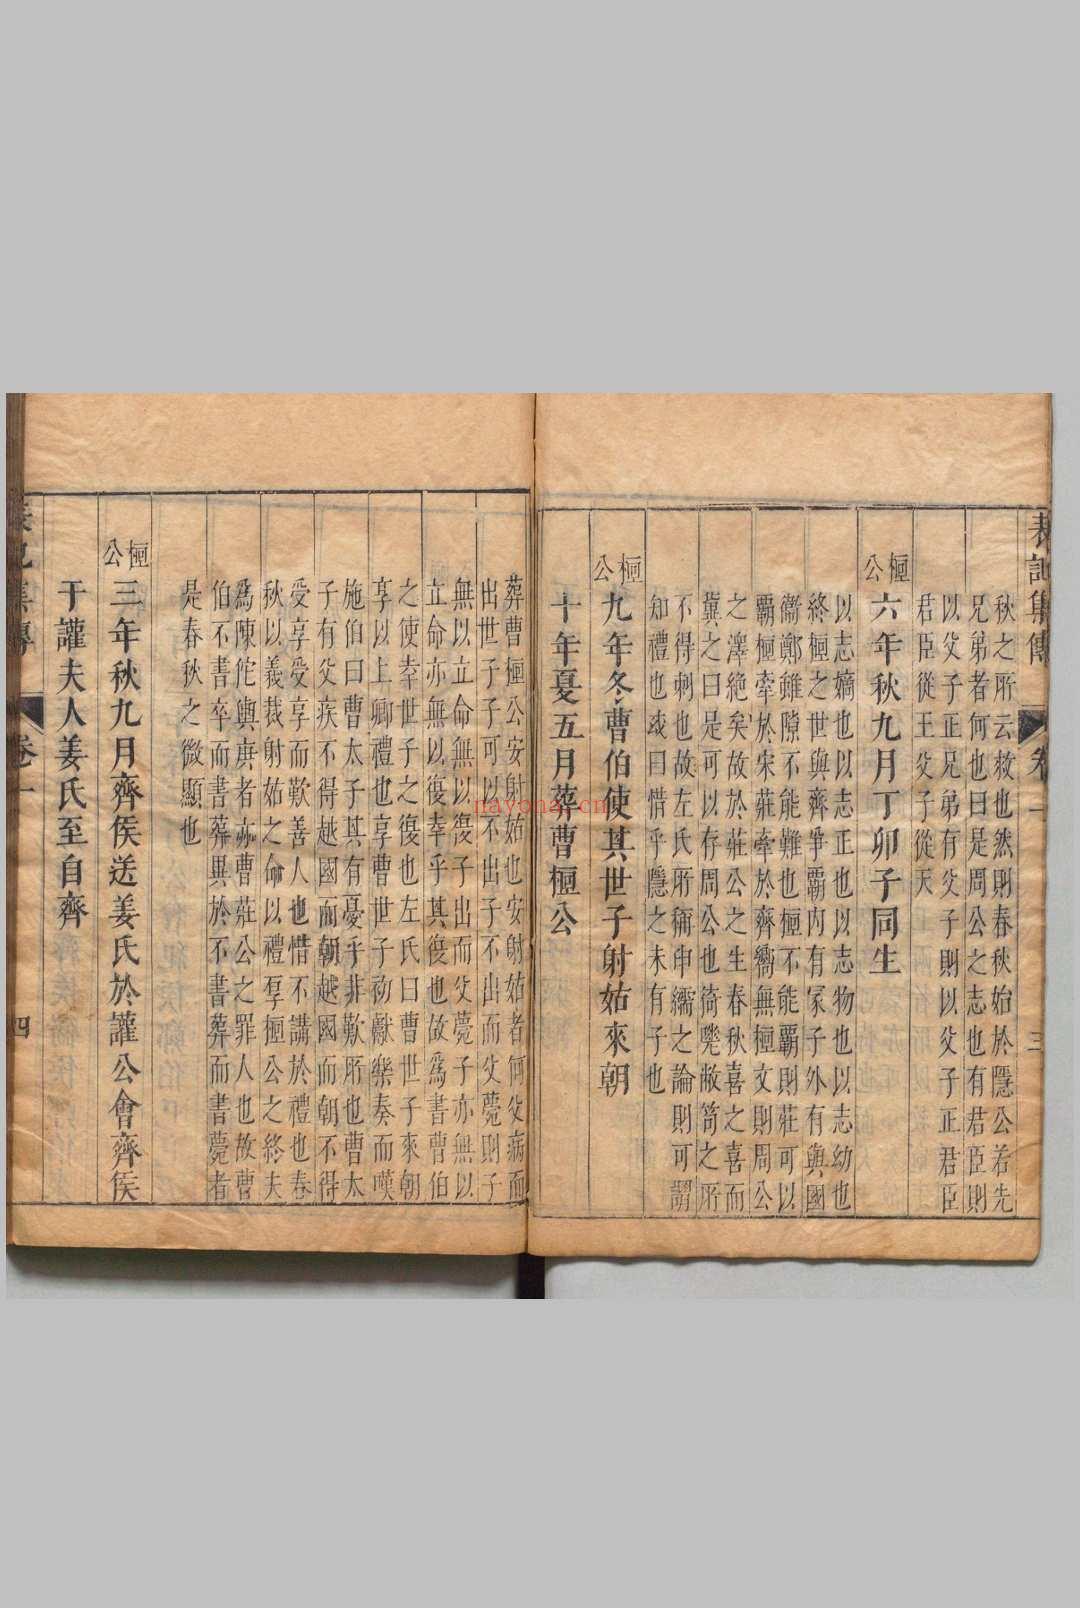 表記集傳
卷一
三
秋之所云救也然則春秋始於隱公若先
兄弟者何也曰是周公之志也有君臣則
以父子正兄弟有父子則以父子正君臣
君臣從王父子從天
桓公
六年秋九月丁卯子同生
以志嫡也以志正也以志物也以志幼也
終桓之世與齊爭霸內有冢子外有與國
衞鄭雖隙不能難也桓不能霸則莊可以
霸桓牽於宋莊牽於齊衞無桓文則周公
之澤絶矣故於莊公之生春秋喜之喜而
冀之曰是可以存周公也猗嗟敝笱之所
不得刺也故左氏所稱申繻之論則可謂
知禮也或曰惜乎隱之未有子也
桓公
九年冬曹伯使其世子射姑來朝
十年夏五月葬曹桓公
葬曹桓公安射姑也安射姑者何父病而
出世子子可以不出子不出而父薨則子
無以立命無以復子出而父薨子亦無以
立命亦無以復幸乎其復也故爲書曹伯
之使幸世子之復也左氏曰曹世子來朝
享以上卿禮也享曹世子初獻樂奏而嘆
施伯曰曹太子其有憂乎非歎所也曹太
子有父疾不得越國而朝越國而朝不得
受享受享而歎善人也惜不講於禮也春
秋以義裁射姑之命以禮孚桓公之終夫
爲陳佗與庚者亦曹莊公之罪人也故曹
伯不書卒而書葬異於不書葬而書薨者
是春秋之微顯也
桓公
三年秋九月齊侯送姜氏於讙公會齊侯
于讙夫人姜氏至自齊
卷一
四
nayona.cn